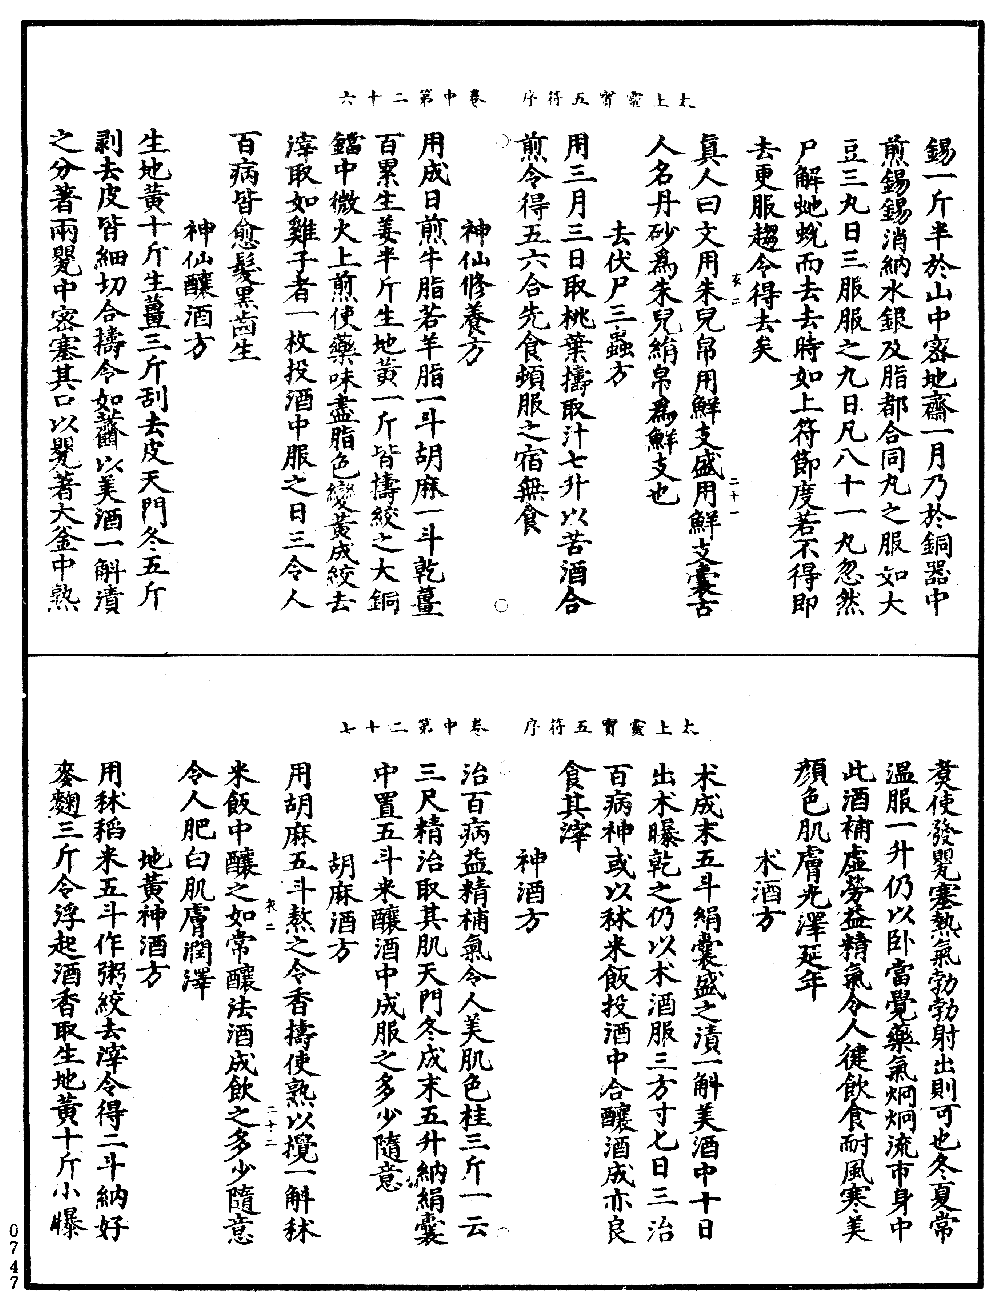 太上靈寳五符序　卷中第二十六
錫一斤半於山中密地齋一月乃於銅器中
煎錫錫消納水銀及脂都合同丸之服如大
豆三丸日三服服之九日凡八十一丸忽然
尸解虵蛻而去去時如上符節度若不得即
去更服趨令得去矣
真人曰文用朱兒帛用鮮支盛用鮮支囊古
人名丹砂爲朱兒絹帛爲鮮支也
去伏尸三蟲方
用三月三日取桃葉擣取汁七升以苦酒合
煎令得五六合先食頓服之宿無食
神仙修養方
用成日煎牛脂若羊脂一斗胡麻一斗乾薑
百累生姜半斤生地黃一斤皆擣絞之大銅
鐺中微火上煎使藥味盡脂色變黃成絞去
滓取如雞子者一枚投酒中服之日三令人
百病皆愈髮黑齒生
神仙釀酒方
生地黃十斤生薑三斤刮去皮天門冬五斤
剥去皮皆細切合擣令如虀以美酒一斛漬
之分著兩甖中密塞其口以甖著大釜中熟
太上靈寳五符序　卷中第二十七
煑使發甖塞熱氣勃勃射出則可也冬夏常
溫服一升仍以卧當覺藥氣炯炯流帀身中
此酒補虛勞益精氣令人健飲食耐風寒美
顏色肌膚光澤延年
术酒方
术成末五斗絹囊盛之漬一斛美酒中十日
出术曝乾之仍以术酒服三方寸匕日三治
百病神或以秫米飯投酒中合釀酒成亦良
食其滓
神酒方
治百病益精補氣令人美肌色桂三斤一云
三尺精治取其肌天門冬成末五升納絹囊
中置五斗米釀酒中成服之多少隨意
胡麻酒方
用胡麻五斗熬之令香擣使熟以攪一斛秫
米飯中釀之如常釀法酒成飲之多少隨意
令人肥白肌膚潤澤
地黃神酒方
用秫稻米五斗作粥絞去滓令得二斗納好
麥麴三斤令浮起酒香取生地黃十斤小曝
0747